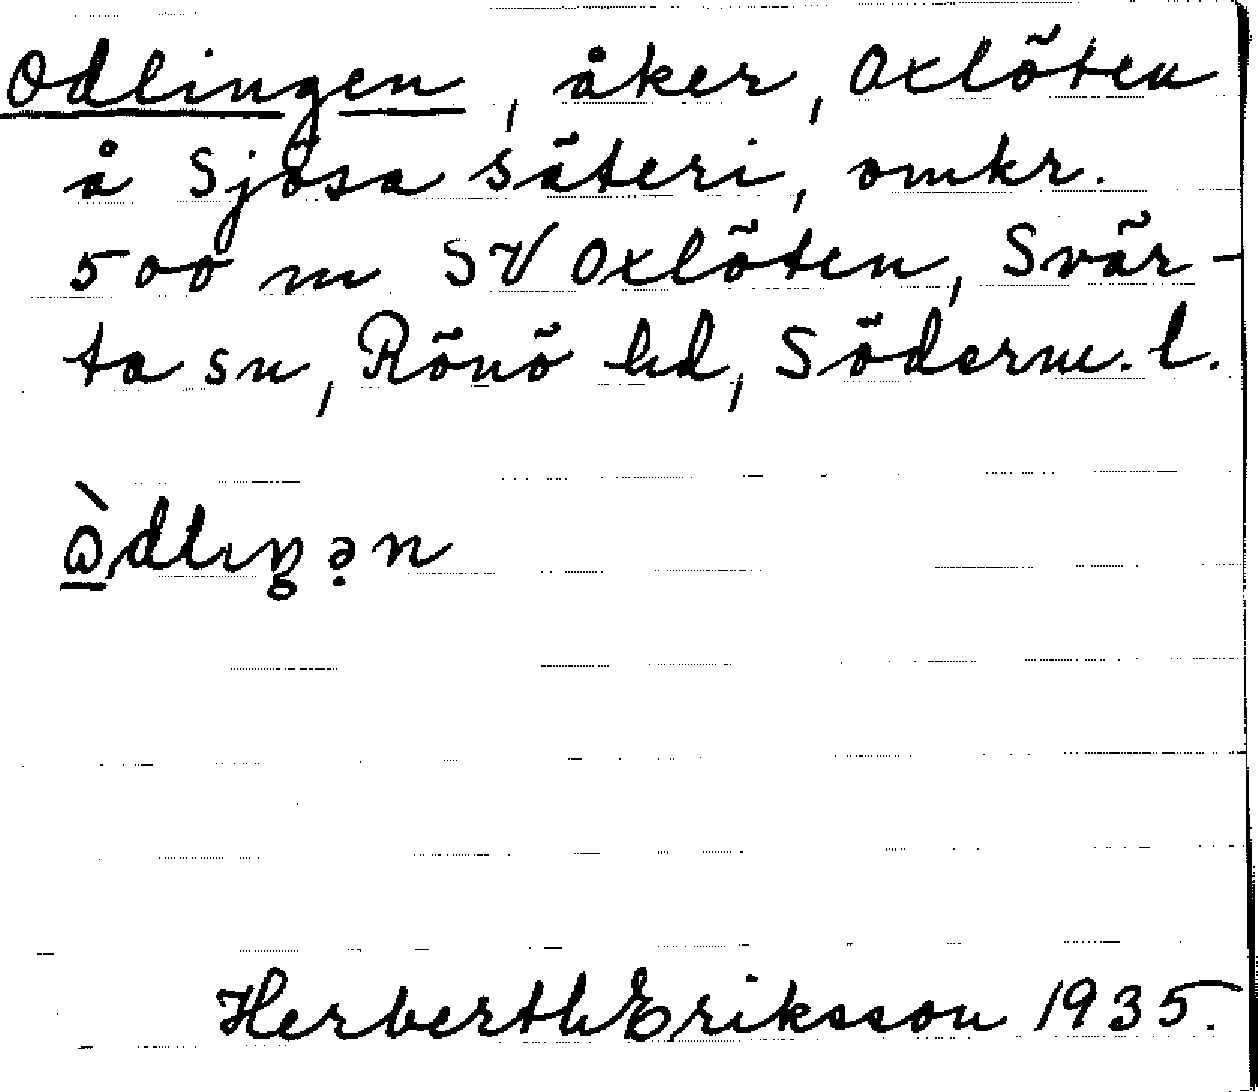 Odlingen, åker, Oxlöten
å Sjösa säteri, omkr.
500 m SV Oxlöten, Svär-
ta sn, Rönö hd, Söderm. l.
ɷ̲̀dlıŋə̣n
Herberth Eriksson 1935.